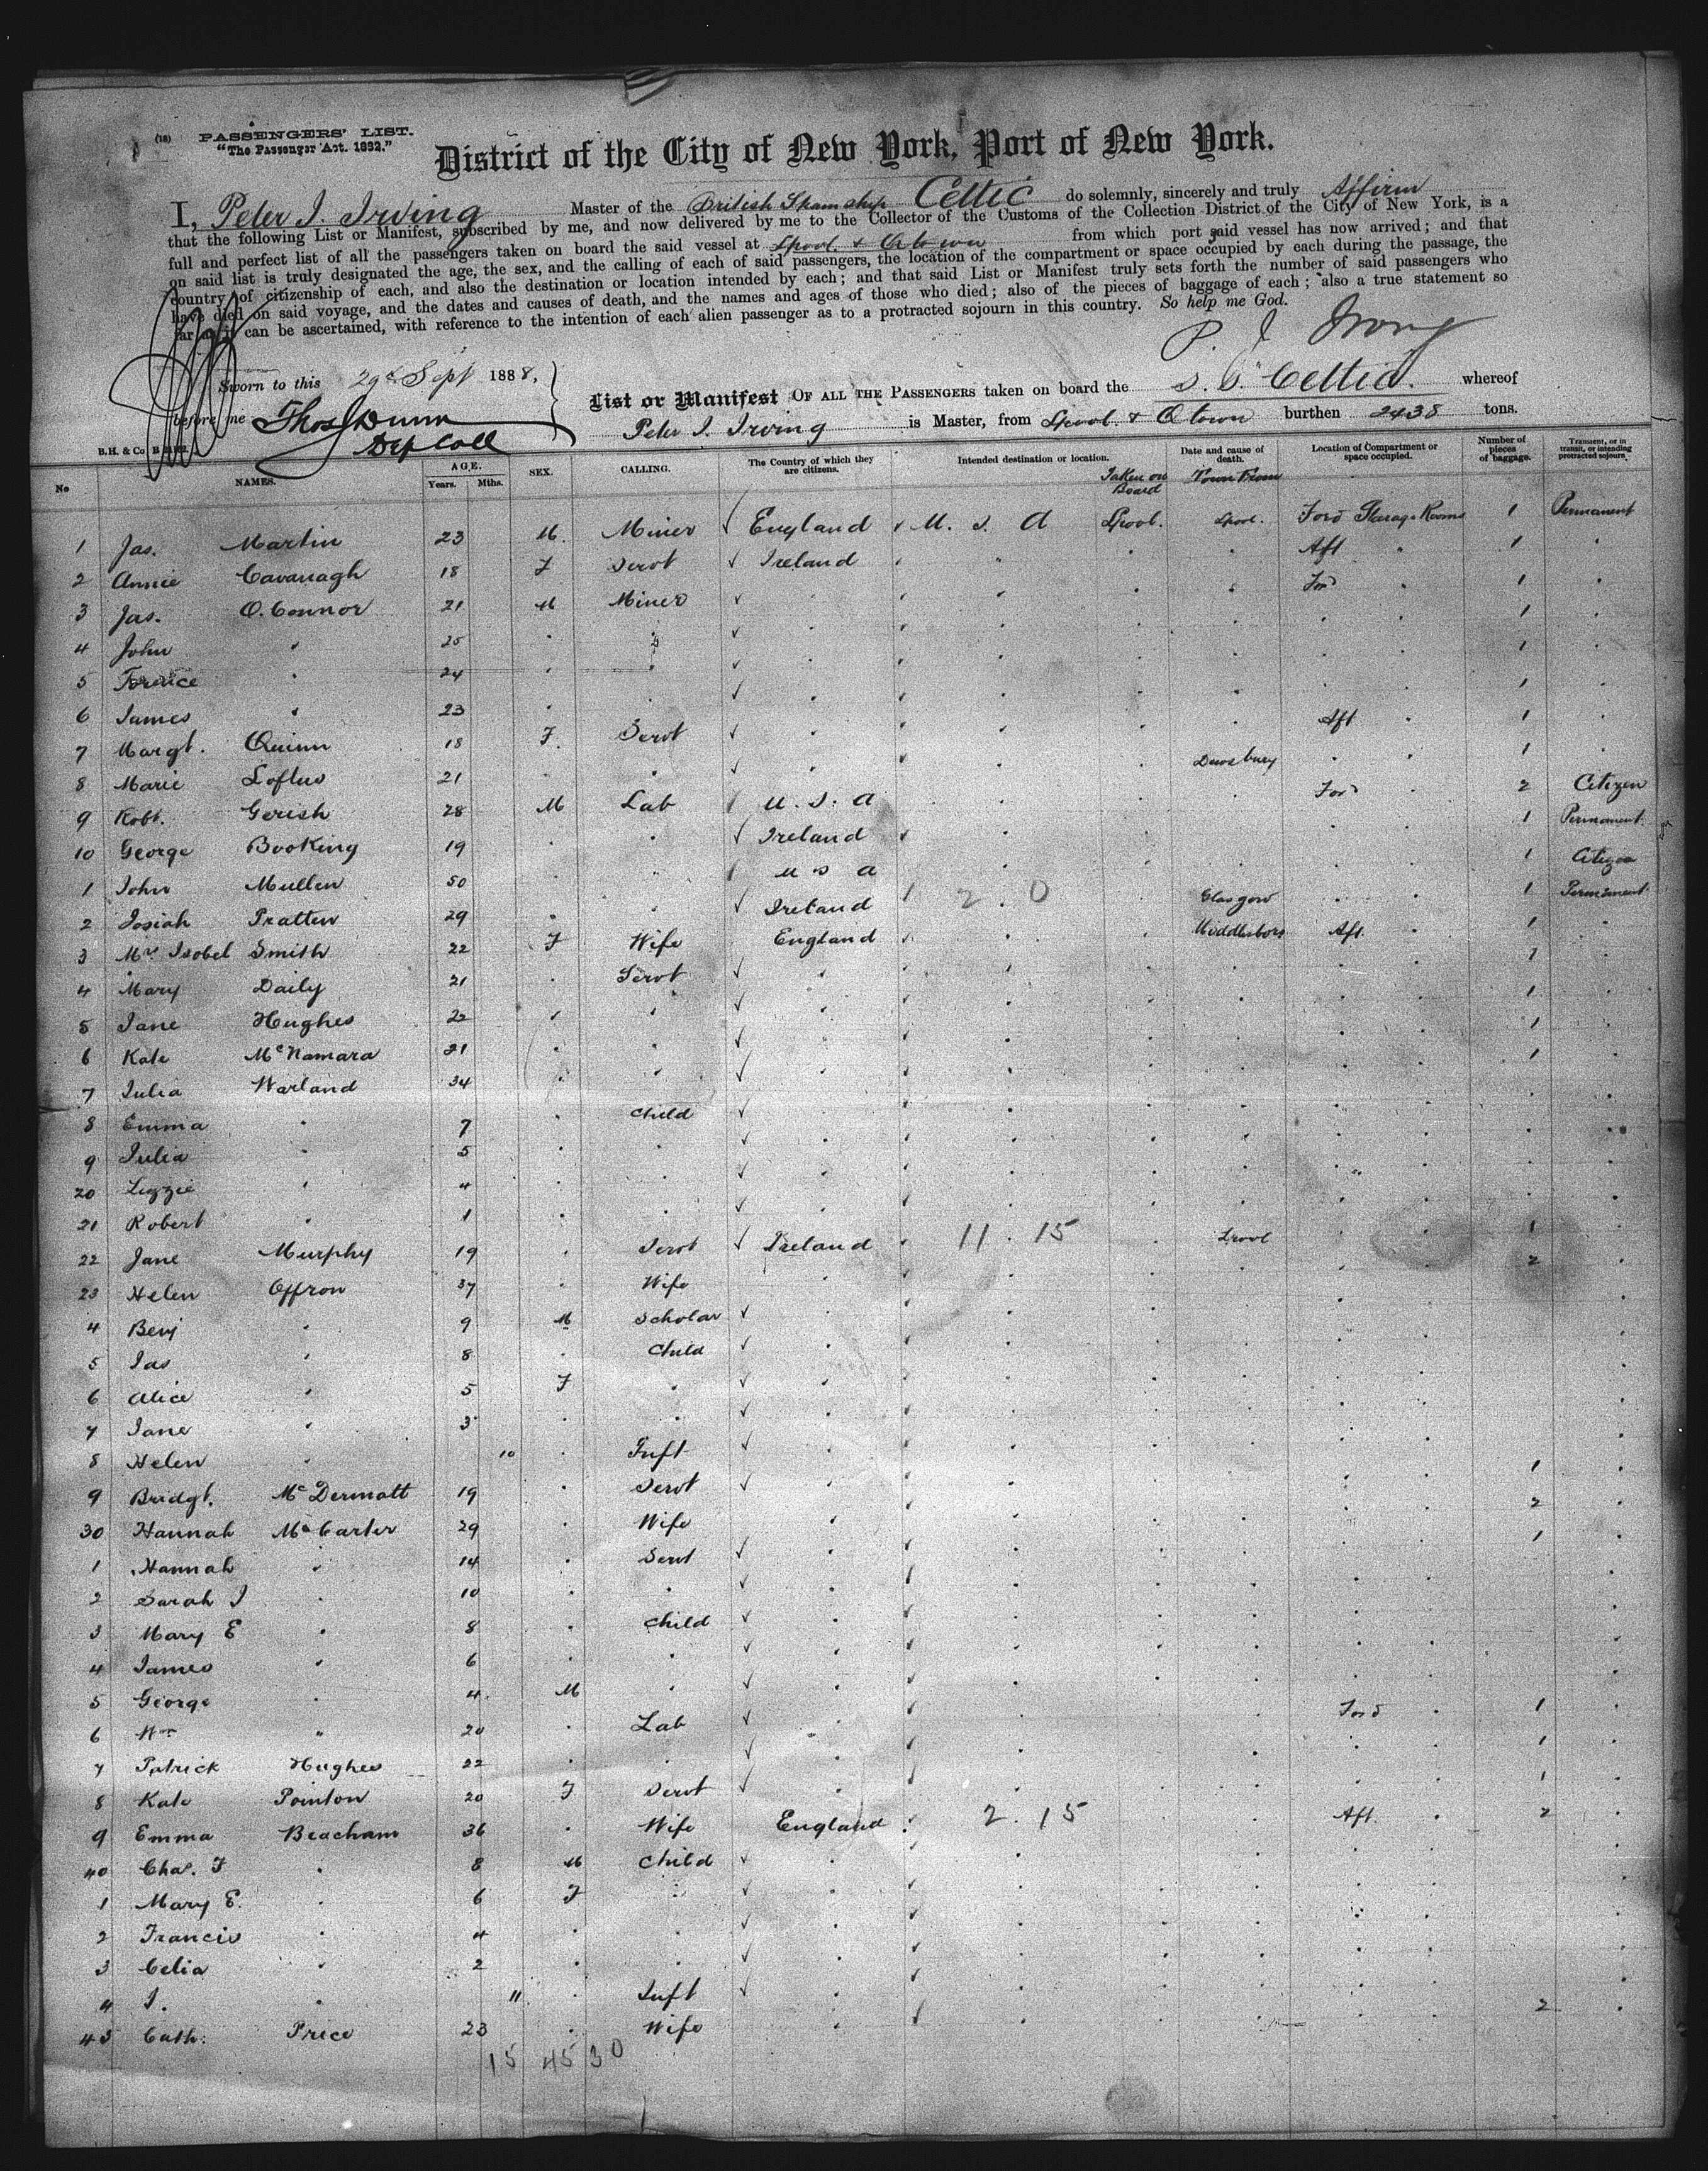 (18) PASSENGERS' LIST.
"The Passenger Act. 1882."
District of the City of New York, Port of New York.
I, Peter J. Irving Master of the British Steamship Celtic do solemnly, sincerely and truly Affirm
that the following List or Manifest, subscribed by me, and now delivered by me to the Collector of the Customs of the Collection District of the City of New York, is a
full and perfect list of all the passengers taken on board the said vessel at Lpool. & Qtown from which port said vessel has now arrived; and that
on said list is truly designated the age, the sex, and the calling of each of said passengers, the location of the compartment or space occupied by each during the passage, the
country of citizenship of each, and also the destination or location intended by each; and that said List or Manifest truly sets forth the number of said passengers who
have died on said voyage, and the dates and causes of death, and the names and ages of those who died; also of the pieces of baggage of each; also a true statement so
far as it can be ascertained, with reference to the intention of each alien passenger as to a protracted sojourn in this country. So help me God.
P. J. Irving
Sworn to this 29th Sept 1888,
before me Thos Dunn
Dep Coll
List or Manifest OF ALL THE PASSENGERS taken on board the S.S. Celtic. whereof
Peter J. Irving is Master, from Lpool. & Qtown burthen 2438 tons.
B.H. & Co
No NAMES. AGE. Years. Mths. SEX. CALLING. The Country of which they are citizens. Intended destination or location. Taken on Board Date and cause of death. Town From Location of Compartment or space occupied. Number of pieces of baggage. Transient, or in transit, or intending protracted sojourn.
1 Jas. Martin 23 M. Miner England U. S. A Lpool. Lpool. Ford Sterage Rooms 1 Permanent
2 Annie Cavanagh 18 F Servt Ireland " " " Aft " 1 "
3 Jas. O.Connor 21 M Miner " " " " Ford " 1 "
4 John " 25 " " " " " " " " 1 "
5 Terence " 24 " " " " " " " " 1 "
6 James " 23 " " " " " " " " 1 "
7 Margt. Quinn 18 F. Servt " " " " Aft " 1 "
8 Marie Loftus 21 " " " " " Dewsbury " " 1 "
9 Robt. Gerish 28 M Lab U. S. A " " " Ford " 2 Citizen
10 George Booking 19 " " Ireland " " " " " 1 Permanent.
1 John Mullen 50 " " U S A " " " " " 1 Citizen
2 Josiah Pratten 29 " " Ireland 2 . 0 " Glasgow " " 1 Permanent
3 Mrs Isobel Smith 22 F Wife England " " Middlesboro Aft. " 1 "
4 Mary Daily 21 " Servt " " " " " " 1 "
5 Jane Hughes 22 " " " " " " " " 1 "
6 Kate McNamara 21 " " " " " " " " 1 "
7 Julia Warland 34 " " " " " " " " 1 "
8 Emma " 7 " Child " " " " " " "
9 Julia " 5 " " " " " " " " "
20 Lizzie " 4 " " " " " " " " "
21 Robert " 1 " " " " " " " " "
22 Jane Murphy 19 " Servt Ireland 11 . 15 " Lpool " " 1 "
23 Helen Offron 37 " Wife " " " " " " 2 "
4 Benj " 9 M Scholar " " " " " " "
5 Jas " 8 " Child " " " " " " "
6 Alice " 5 F " " " " " " " "
7 Jane " 3 " " " " " " " " "
8 Helen " 10 " Inft " " " " " " "
9 Bridgt. McDermott 19 " Servt " " " " " " 1 "
30 Hannah McCarter 29 " Wife " " " " " " 2 "
1 Hannah " 14 " Servt " " " " " " 1 "
2 Sarah J " 10 " " " " " " " " "
3 Mary E " 8 " Child " " " " " " "
4 James " 6 " " " " " " " " "
5 George " 4 M " " " " " " " "
6 Wm " 20 " Lab " " " " Ford " 1 "
7 Patrick Hughes 22 " " " " " " " " 1 "
8 Kate Pointon 20 F Servt " " " " " " 1 "
9 Emma Beacham 36 " Wife England 2 . 15 " " Aft. " 2 "
40 Chas. F " 8 M Child " " " " " " "
1 Mary E. " 6 F " " " " " " " "
2 Francis " 4 " " " " " " " " "
3 Celia " 2 " " " " " " " " "
4 J. " 11 " Inft " " " " " " "
45 Cath: Price 23 " Wife " " " " " " 2 "
15 45 30